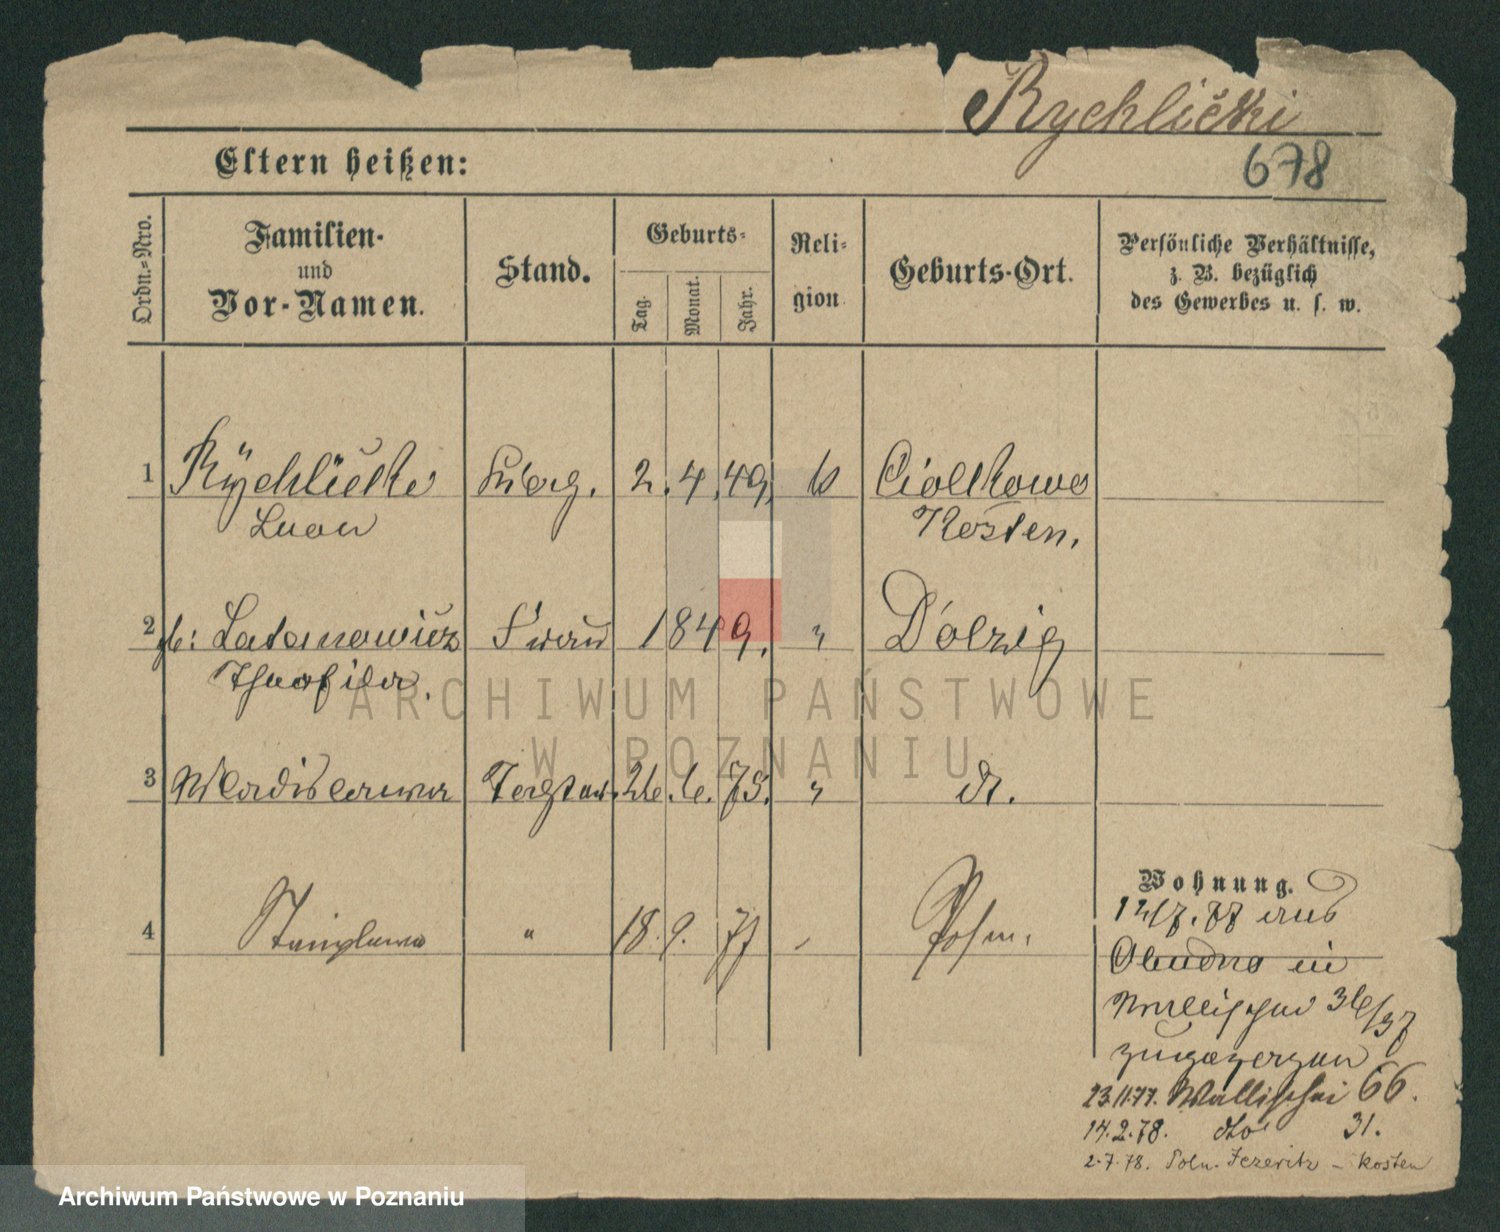 Rychlicki
678
Eltern heißen:
Ordn.-Nro.
Familien-
und
Vor-Namen.
Stand.
Geburts-
Tag.
Monat.
Jahr.
Reli-
gion
Geburts-Ort.
Persönliche Verhältnisse,
z. B. bezüglich
des Gewerbes u. s. w.
1 Rychlicki 2. 4. 49. Ciolkowo
Leon Kosten.
2 Latanowicz Frau 1849. " Dolzig
3 Wladislawa Tochter 26. 6. 75. " dt.
4 Stanislawa " 18. 9. 77 Posen.
Wohnung.
12/7. 77 aus
in
Wallischei 36/37
zugezogen
23.11.77. Wallischei 66.
14.2.78. dto 31.
2.7.78. Poln. Jezeritz – Kosten
ARCHIWUM PAŃSTWOWE
W POZNANIU
Archiwum Państwowe w Poznaniu